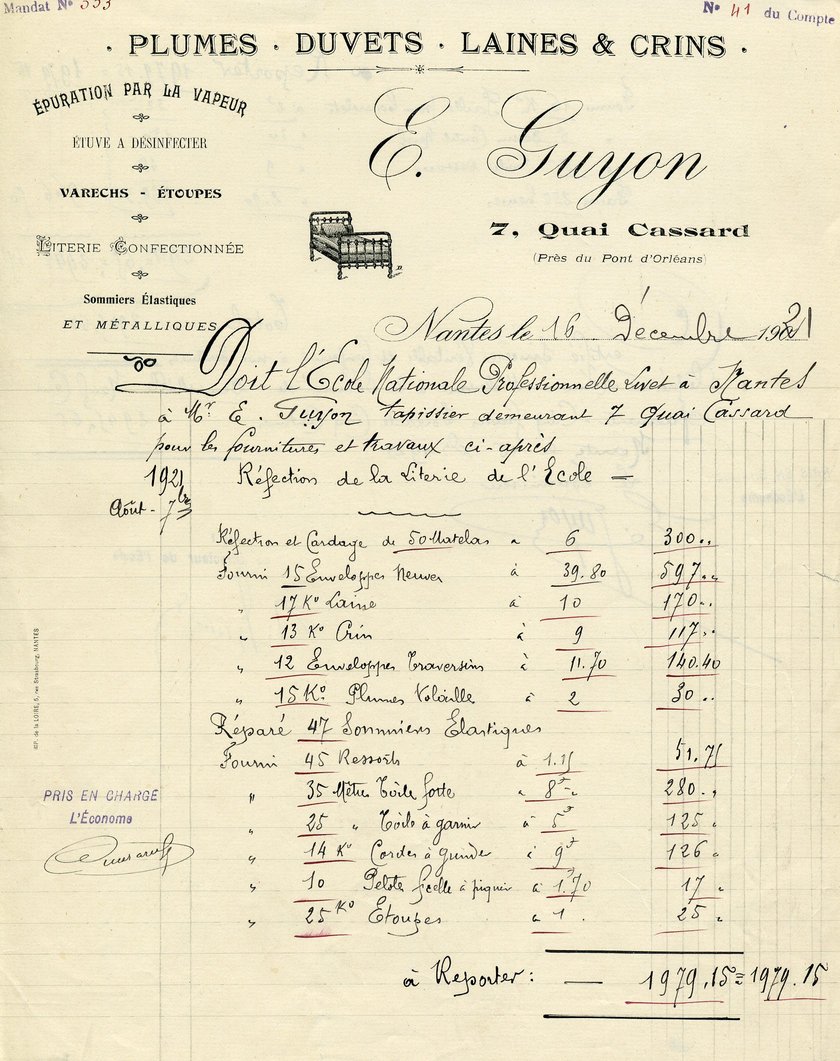 Mandat N° 553
N° 41 du Compte
· PLUMES · DUVETS · LAINES & CRINS ·
ÉPURATION PAR LA VAPEUR
ÉTUVE A DÉSINFECTER
VARECHS - ÉTOUPES
LITERIE CONFECTIONNÉE
Sommiers Élastiques
ET MÉTALLIQUES
E. Guyon
7, Quai Cassard
(Près du Pont d'Orléans)
Nantes le 16 Décembre 1921
Doit l'École Nationale Professionnelle Livet à Nantes
à Mr E. Guyon tapissier demeurant 7 Quai Cassard
pour les fournitures et travaux ci-après
1921 Réfection de la Literie de l'École —
Août - 7bre
Réfection et Cardage de 50 Matelas à 6 300 ..
Fourni 15 Enveloppes Neuves à 39.80 597 ..
" 17 Ko Laine à 10 170 ..
" 13 Ko Crin à 9 117 ..
" 12 Enveloppes Traversins à 11.70 140.40
" 15 Ko Plumes Volaille à 2 30 ..
Réparé 47 Sommiers Elastiques
Fourni 45 Ressorts à 1.15 51.75
" 35 Mètres Toile forte à 8f " 280 "
" 25 " Toile à garnir à 5f 125 "
" 14 Ko Cordes à guinder à 9f 126 "
" 10 Pelote ficelle à piquer à 1.70 17 "
" 25 Ko Etoupes à 1. 25 "
à Reporter : — 1979.15 = 1979.15
PRIS EN CHARGE
L'Économe
IMP. de la LOIRE, 5, rue Strasbourg, NANTES